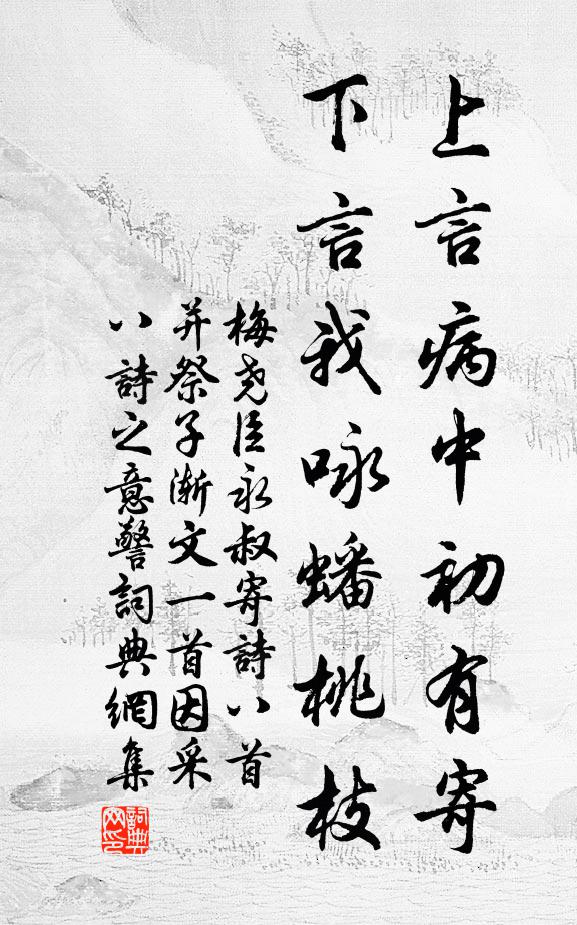 上言病中初有寄
下言我咏蟠桃枝
梅尧臣永叔寄詩八首
并祭子漸文一首因采
八詩之意警詞典網集
詞典
网印